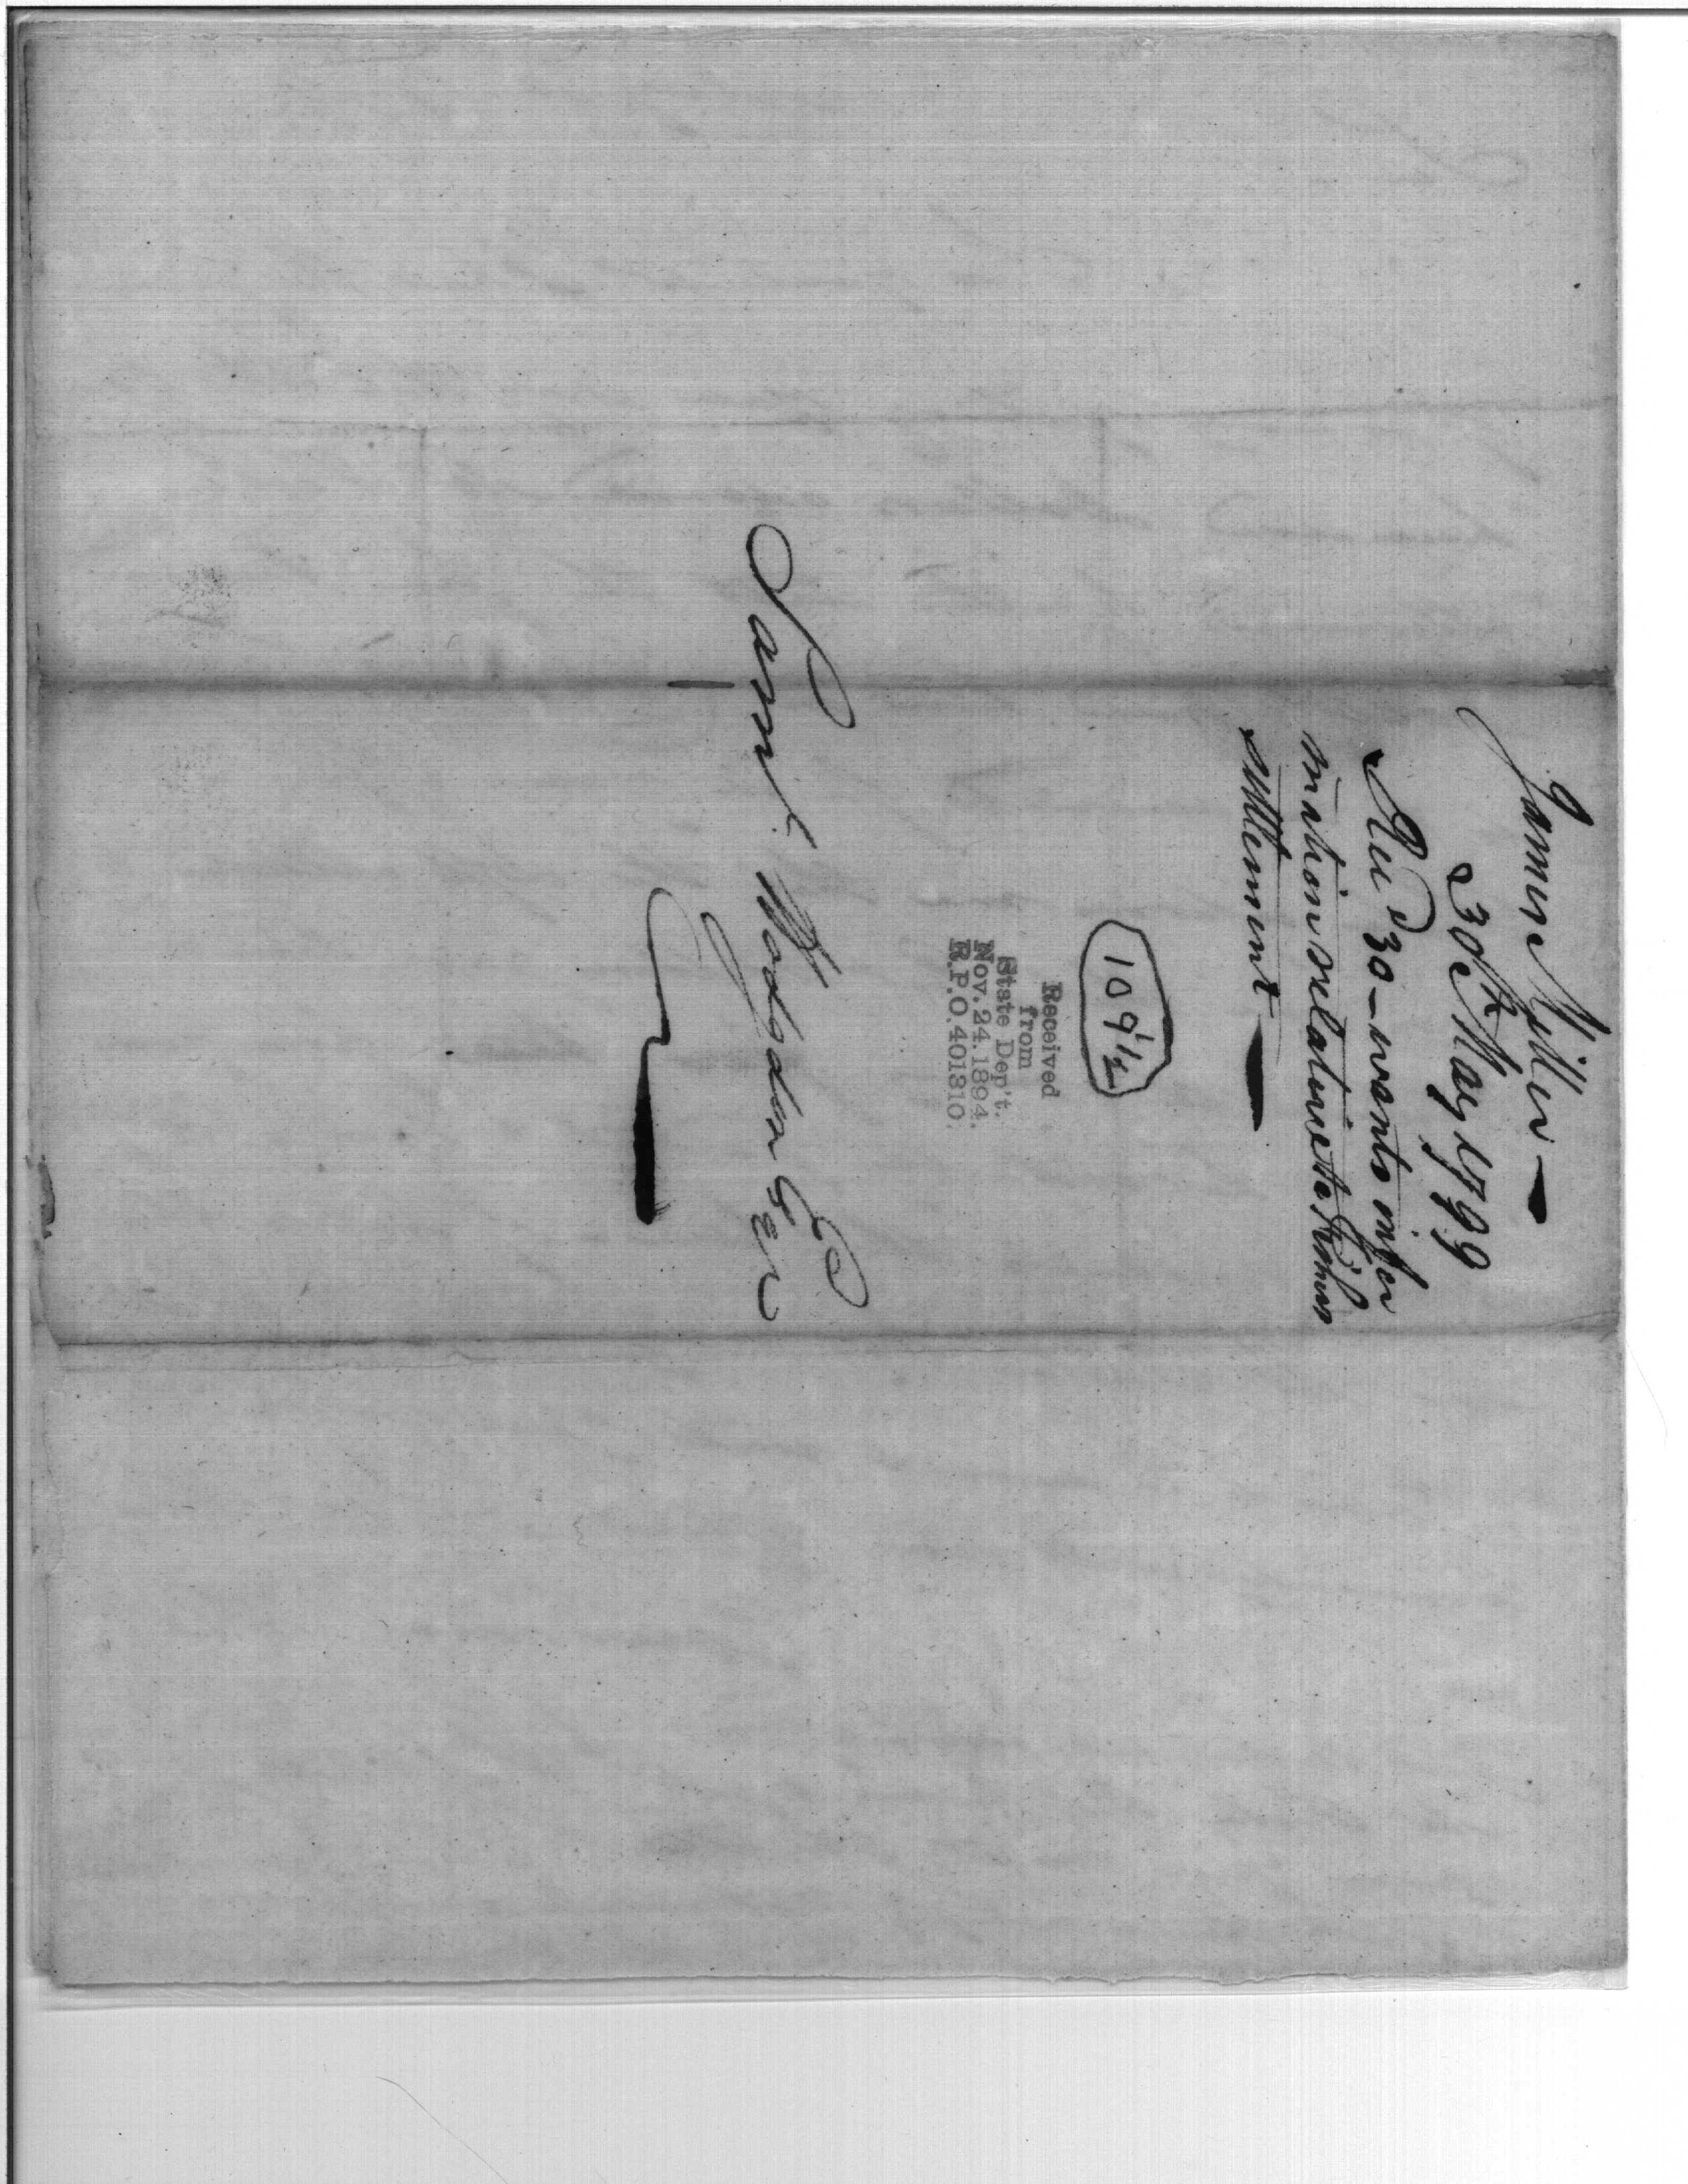 James Miller
30th May 1799
Recd 30 - wants infor
mation relative to
settlement
109 1/2
Received
from
State Dep't.
Nov. 24. 1894.
R.P.O. 401310.
Saml. Hodgdon Esqr